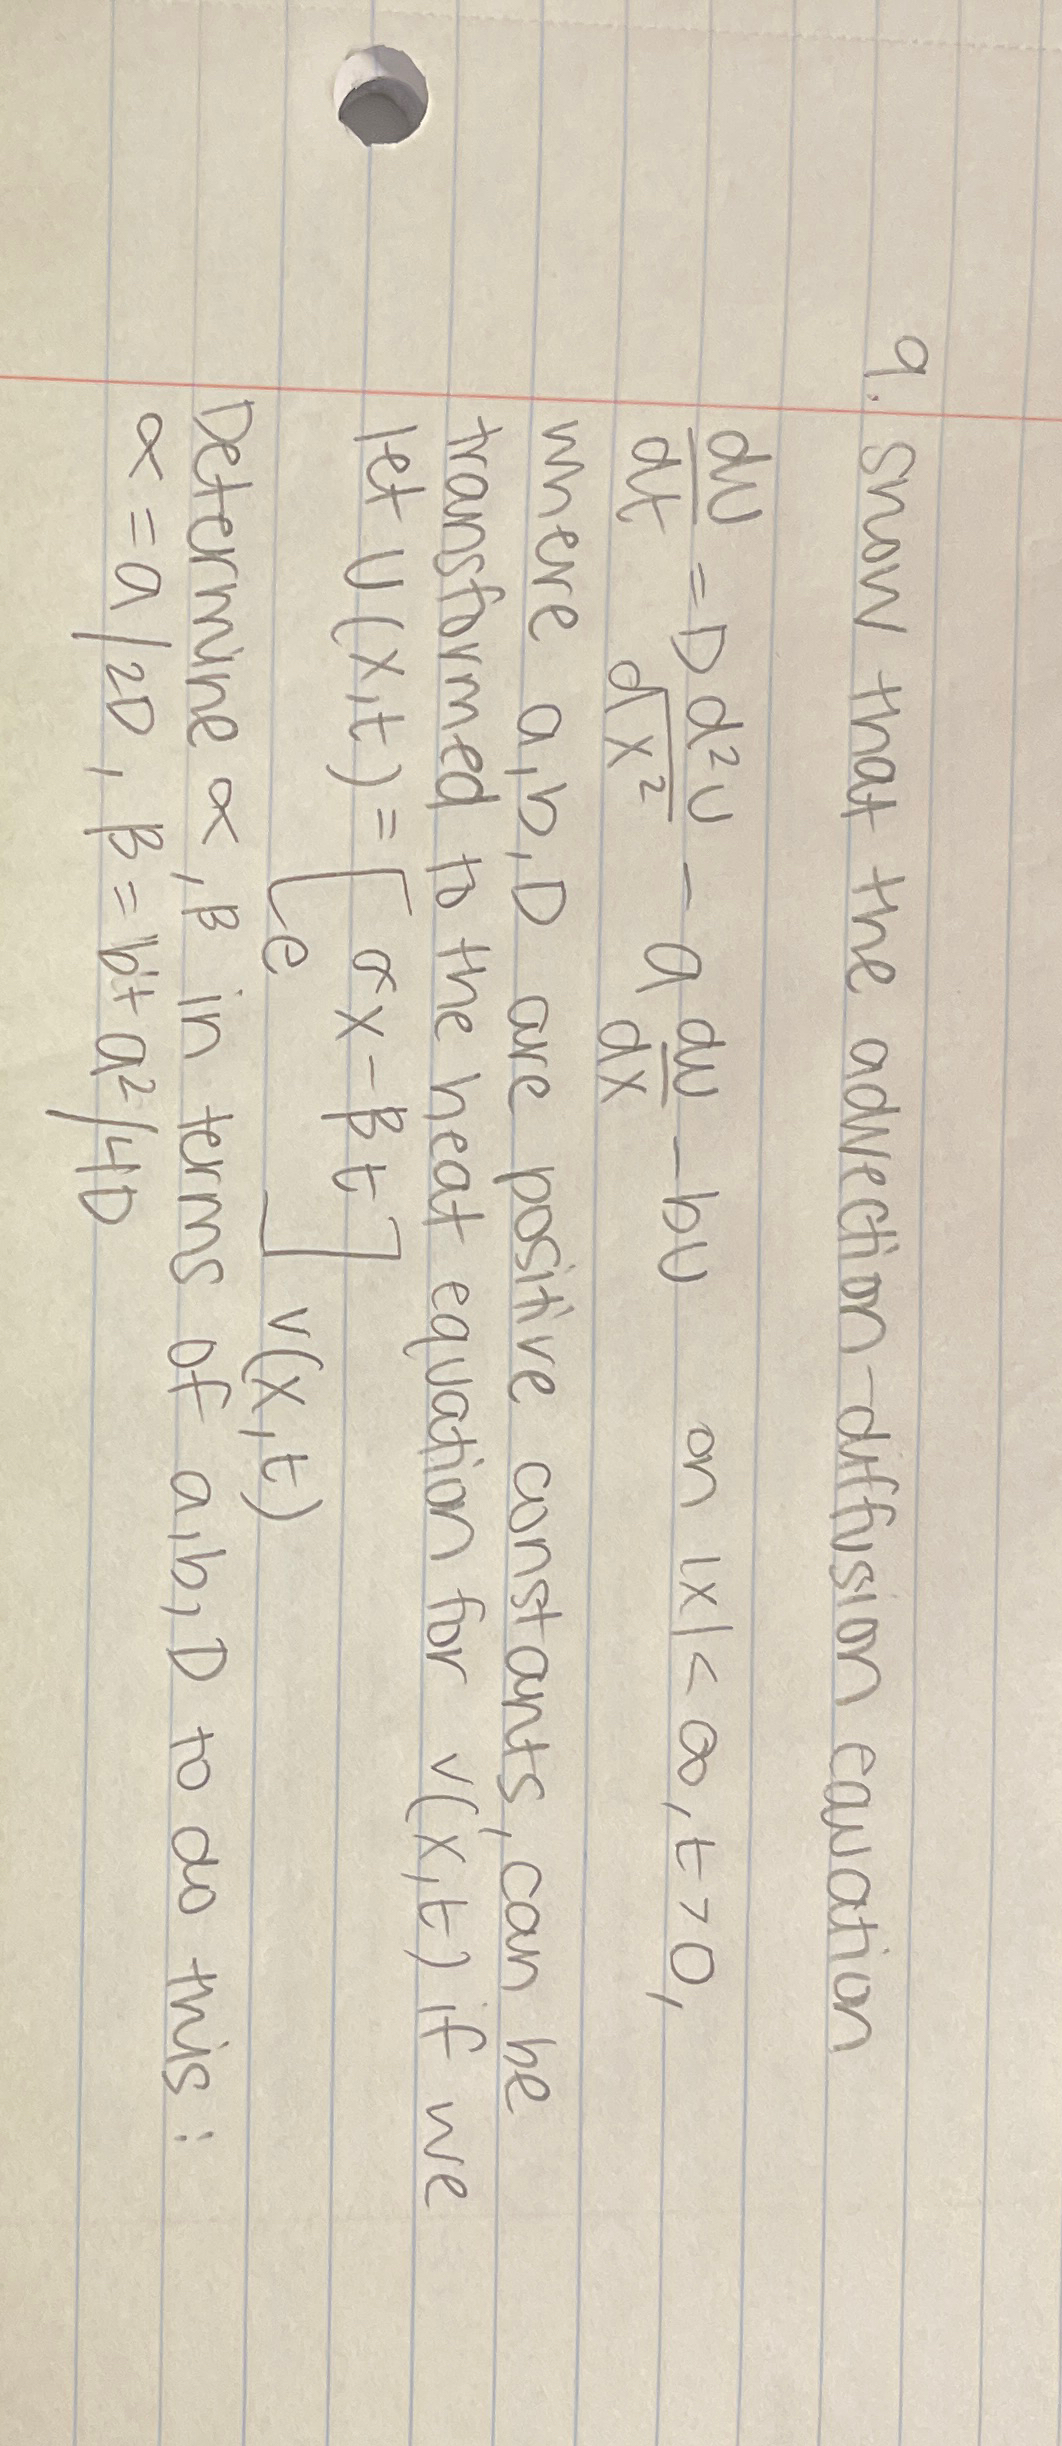 9. Show that the advection-diffusion equation
du/dt = D d²u/dx² - a du/dx - bu on |x| < ∞, t > 0,
where a, b, D are positive constants, can be
transformed to the heat equation for v(x,t) if we
let u(x,t) = [e^[αx - βt]] v(x,t)
Determine α, β in terms of a, b, D to do this:
α = a/2D, β = b + a²/4D